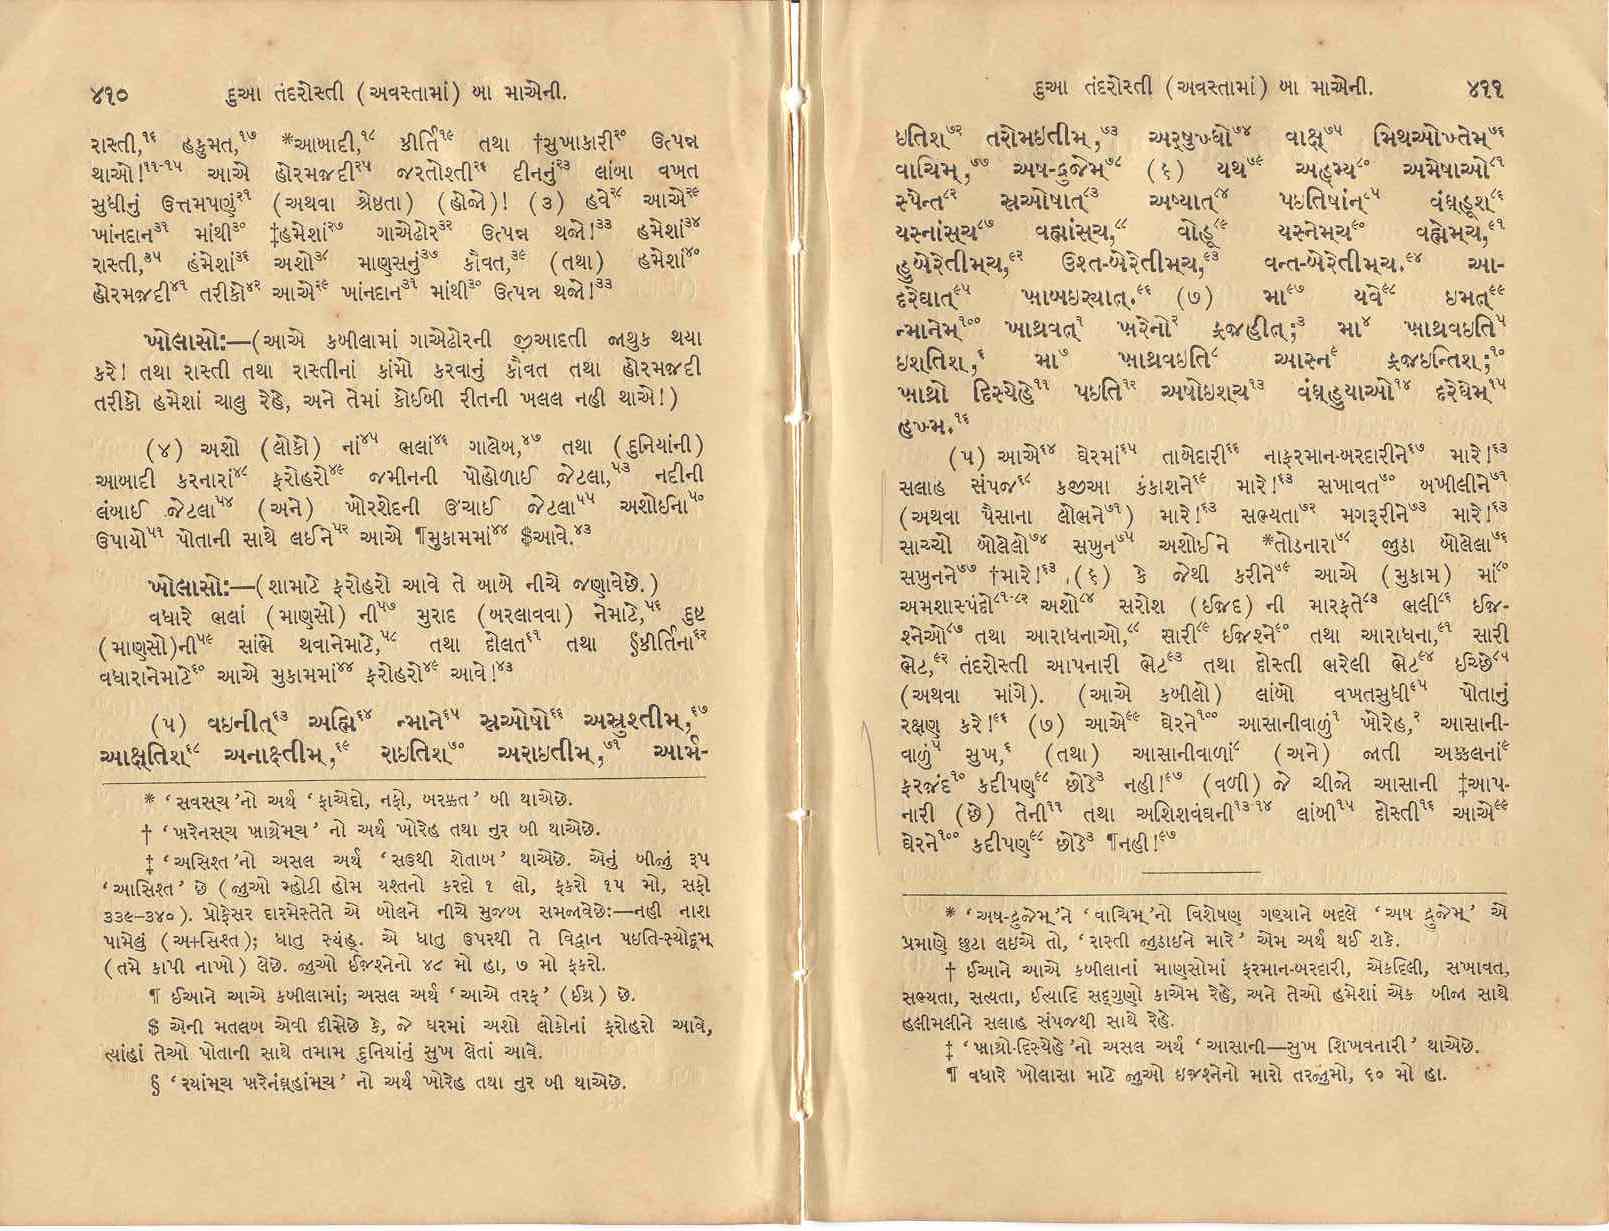 ૪૧૦ દુઆ તંદરોસ્તી (અવસ્તામાં) બા માએની.
રાસ્તી,૧૬ હકુમત,૧૭ *આબાદી,૧૮ કીર્તિ૧૯ તથા †સુખાકારી૨૦ ઉત્પન્ન
થાઓ!૧૧-૧૫ આએ હોરમજદી૨૫ જરતોશ્તી૨૬ દીનનું૨૩ લાંબા વખત
સુધીનું ઉત્તમપણું૨૧ (અથવા શ્રેષ્ઠતા) (હોજો)! (૩) હવે૨૮ આએ૨૯
ખાંનદાન૩૧ માંથી૩૦ ‡હમેશાં૨૭ ગાએઢોર૩૨ ઉત્પન્ન થજો!૩૩ હમેશાં૩૪
રાસ્તી,૩૫ હંમેશાં૩૬ અશો૩૮ માણસનું૩૭ કૌવત,૩૯ (તથા) હમેશાં૪૦
હોરમજદી૪૧ તરીકો૪૨ આએ૨૯ ખાંનદાન૩૧ માંથી૩૦ ઉત્પન્ન થજો!૩૩
ખોલાસો:—(આએ કબીલામાં ગાએઢોરની જીઆદતી જાથુક થયા
કરે! તથા રાસ્તી તથા રાસ્તીનાં કાંમો કરવાનું કૌવત તથા હોરમજદી
તરીકો હમેશાં ચાલુ રેહે, અને તેમાં કોઈબી રીતની ખલલ નહી થાએ!)
(૪) અશો (લોકો) નાં૪૫ ભલાં૪૬ ગાલેબ,૪૭ તથા (દુનિયાંની)
આબાદી કરનારાં૪૮ ફરોહરો૪૯ જમીનની પોહોળાઈ જેટલા,૫૩ નદીની
લંબાઈ જેટલા૫૪ (અને) ખોરશેદની ઉંચાઈ જેટલા૫૫ અશોઈના૫૦
ઉપાયો૫૧ પોતાની સાથે લઈને૫૨ આએ ¶મુકામમાં૪૪ $આવે.૪૩
ખોલાસો:—(શામાટે ફરોહરો આવે તે બાબે નીચે જણાવેછે.)
વધારે ભલાં (માણસો) ની૫૭ મુરાદ (બરલાવવા) નેમાટે,૫૬ દુષ્ટ
(માણસો)ની૫૯ સાંભે થવાનેમાટે,૫૮ તથા દોલત૬૧ તથા §કીર્તિના૬૨
વધારાનેમાટે૬૦ આએ મુકામમાં૪૪ ફરોહરો૪૯ આવે!૪૩
(૫) વઇનીત્૬૩ અહ્મિ૬૪ ન્માને૬૫ સ્રઓષો૬૬ અસ્રુશ્તીમ્,૬૭
આક્ષ્તિશ્૬૮ અનાક્ષ્તીમ્,૬૯ રાઇતિશ્૭૦ અરાઇતીમ્,૭૧ આર્મ-
* ‘સવસચ’નો અર્થ ‘ફાએદો, નફો, બરકત’ બી થાએછે.
† ‘ખરેનસ્ચ ખાથ્રેમ્ચ’ નો અર્થ ખોરેહ તથા નુર બી થાએછે.
‡ ‘અસિશ્ત’નો અસલ અર્થ ‘સઉથી શેતાબ’ થાએછે. એનું બીજું રૂપ
‘આસિશ્ત’ છે (જુઓ મ્હોટી હોમ યશ્તનો કરદો ૧ લો, ફકરો ૧૫ મો, સફો
૩૩૯-૩૪૦). પ્રોફેસર દારમેસ્તેતે એ બોલને નીચે મુજબ સમજાવેછે:—નહી નાશ
પામેલું (અ+સિશ્ત); ધાતુ સ્યંહ્. એ ધાતુ ઉપરથી તે વિદ્વાન પઇતિ-સ્યોદૂમ્
(તમે કાપી નાખો) લેછે. જુઓ ઈજશ્નેનો ૪૮ મો હા, ૭ મો ફકરો.
¶ ઈઆને આએ કબીલામાં; અસલ અર્થ ‘આએ તરફ’ (ઈથ્ર) છે.
$ એની મતલબ એવી દીસેછે કે, જે ઘરમાં અશો લોકોનાં ફરોહરો આવે,
ત્યાંહાં તેઓ પોતાની સાથે તમામ દુનિયાંનું સુખ લેતાં આવે.
§ ‘રયાંમ્ચ ખરેનંઘ્હાંમ્ચ’ નો અર્થ ખોરેહ તથા નુર બી થાએછે.
દુઆ તંદરોસ્તી (અવસ્તામાં) બા માએની. ૪૧૧
ઇતિશ્૭૨ તરોમઇતીમ્,૭૩ અર્ષુખ્ધો૭૪ વાક્ષ્૭૫ મિથઓખ્તેમ્૭૬
વાચિમ્,૭૭ અષ-દ્રુજેમ્૭૮ (૬) યથ૭૯ અહ્મ્ય૮૦ અમેષાઓ૮૧
સ્પેન્ત૮૨ સ્રઓષાત્૮૩ અષ્યાત્૮૪ પઇતિષાંન્૮૫ વંઘ્હૂશ્૮૬
યસ્નાંસ્ચ૮૭ વહ્માંસ્ચ,૮૮ વોહૂ૮૯ યસ્નેમ્ચ૯૦ વહ્મેમ્ચ,૯૧
હુબેરેતીમ્ચ,૯૨ ઉશ્ત-બેરેતીમ્ચ,૯૩ વન્ત-બેરેતીમ્ચ.૯૪ આ-
દરેઘાત્૯૫ ખાબઇર્યાત્.૯૬ (૭) મા૯૭ યવે૯૮ ઇમત્૯૯
ન્માનેમ્૧૦૦ ખાથ્રવત્૧ ખરેનો૨ ફ્રજહીત્;૩ મા૪ ખાથ્રવઇતિ૫
ઇશ્તિશ્,૬ મા૭ ખાથ્રવઇતિ૮ આસ્ન૯ ફ્રજઇન્તિશ્;૧૦
ખાથ્રો દિસ્યેહે૧૧ પઇતિ૧૨ અષોઇશ્ચ૧૩ વંઘ્હુયાઓ૧૪ દરેઘેમ્૧૫
હખ્મ.૧૬
(૫) આએ૬૪ ઘેરમાં૬૫ તાબેદારી૬૬ નાફરમાન-બરદારીને૬૭ મારે!૬૩
સલાહ સંપજ૬૮ કજીઆ કંકાશને૬૯ મારે!૬૩ સખાવત૭૦ બખીલીને૭૧
(અથવા પૈસાના લોભને૭૧) મારે!૬૩ સભ્યતા૭૨ મગરૂરીને૭૩ મારે!૬૩
સાચ્ચો બોલેલો૭૪ સખુન૭૫ અશોઈને *તોડનારા૭૮ જુઠા બોલેલા૭૬
સખુનને૭૭ †મારે!૬૩ (૬) કે જેથી કરીને૭૯ આએ (મુકામ) માં૮૦
અમશાસ્પંદો૮૧-૮૨ અશો૮૪ સરોશ (ઈજદ) ની મારફતે૮૩ ભલી૮૬ ઈજ-
શ્નેઓ૮૭ તથા આરાધનાઓ,૮૮ સારી૮૯ ઈજશ્ને૯૦ તથા આરાધના,૯૧ સારી
ભેટ,૯૨ તંદરોસ્તી આપનારી ભેટ૯૩ તથા દોસ્તી ભરેલી ભેટ૯૪ ઈચ્છે૮૫
(અથવા માંગે). (આએ કબીલો) લાંબો વખતસુધી૯૫ પોતાનું
રક્ષણ કરે!૯૬ (૭) આએ૯૯ ઘેરને૧૦૦ આસાનીવાળું૧ ખોરેહ,૨ આસાની-
વાળું૫ સુખ,૬ (તથા) આસાનીવાળાં૮ (અને) જાતી અક્કલનાં૯
ફરજંદ૧૦ કદીપણ૯૮ છોડે૩ નહી!૯૭ (વળી) જે ચીજો આસાની ‡આપ-
નારી (છે) તેની૧૧ તથા અશિશવંઘની૧૩-૧૪ લાંબી૧૫ દોસ્તી૧૬ આએ૯૯
ઘેરને૧૦૦ કદીપણ૯૮ છોડે૩ ¶નહી!૯૭
* ‘અષ-દ્રુજેમ્’ને ‘વાચિમ્’નો વિશેષણ ગણ્યાને બદલે ‘અષ દ્રુજેમ્’ એ
પ્રમાણે છુટા લઇએ તો, ‘રાસ્તી જુઠાઇને મારે’ એમ અર્થ થઈ શકે.
† ઈઆને આએ કબીલાનાં માણસોમાં ફરમાન-બરદારી, એકદિલી, સખાવત,
સભ્યતા, સત્યતા, ઈત્યાદિ સદ્ગુણો કાએમ રેહે, અને તેઓ હમેશાં એક બીજા સાથે
હલીમલીને સલાહ સંપજથી સાથે રેહે.
‡ ‘ખાથ્રો-દિસ્યેહે’નો અસલ અર્થ ‘આસાની—સુખ શિખવનારી’ થાએછે.
¶ વધારે ખોલાસા માટે જુઓ ઇજશ્નેનો મારો તરજુમો, ૬૦ મો હા.